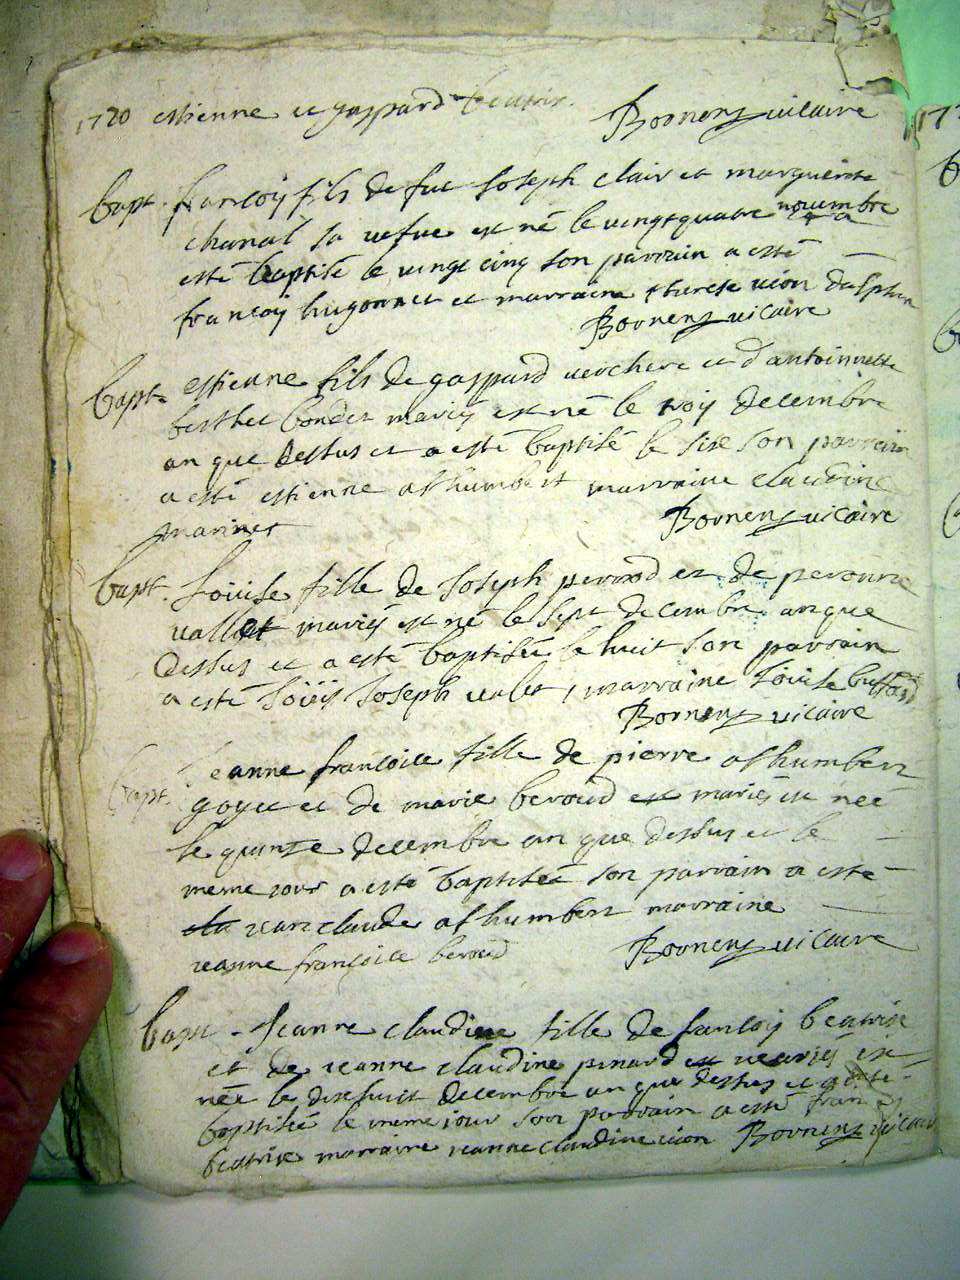 1720 estienne et gaspard beatrix.
Bornens vicaire
bapt. françois fils de fut Joseph clair et marguerite
chanal sa vefve est né le vingt quatre novembre a
esté baptisé le vingt cinq son parrain a esté
françois hugonnet et marraine therese vion dalphin
Bornens vicaire
bapt. estienne fils de gaspard verchere et d'antoinette
berthet bondet mariés est né le trois decembre
an que dessus et a esté baptisé le sixe son parrain
a esté estienne athumbert marraine claudine
marinet
Bornens vicaire
bapt. Loüise fille de Joseph perrod et de peronne
vallet mariés est né le sept decembre an que
dessus et a esté baptisée le huit son parrain
a esté Loüis Joseph valet, marraine Loüise buffard
Bornens vicaire
bapt. Jeanne françoise fille de pierre athumbert
goyet et de marie beroud est mariés est née
le quinze decembre an que dessus et le
meme jour a esté baptisée son parrain a esté
jean claude athumbert marraine
jeanne françoise beroud
Bornens vicaire
bapt. Jeanne claudine fille de françois beatrise
et de jeanne claudine penard est mariés est
née le dixhuict decembre an que dessus et a esté
baptisée le meme jour son parrain a esté françois
beatrise marraine jeanne claudine vion Bornens vicaire